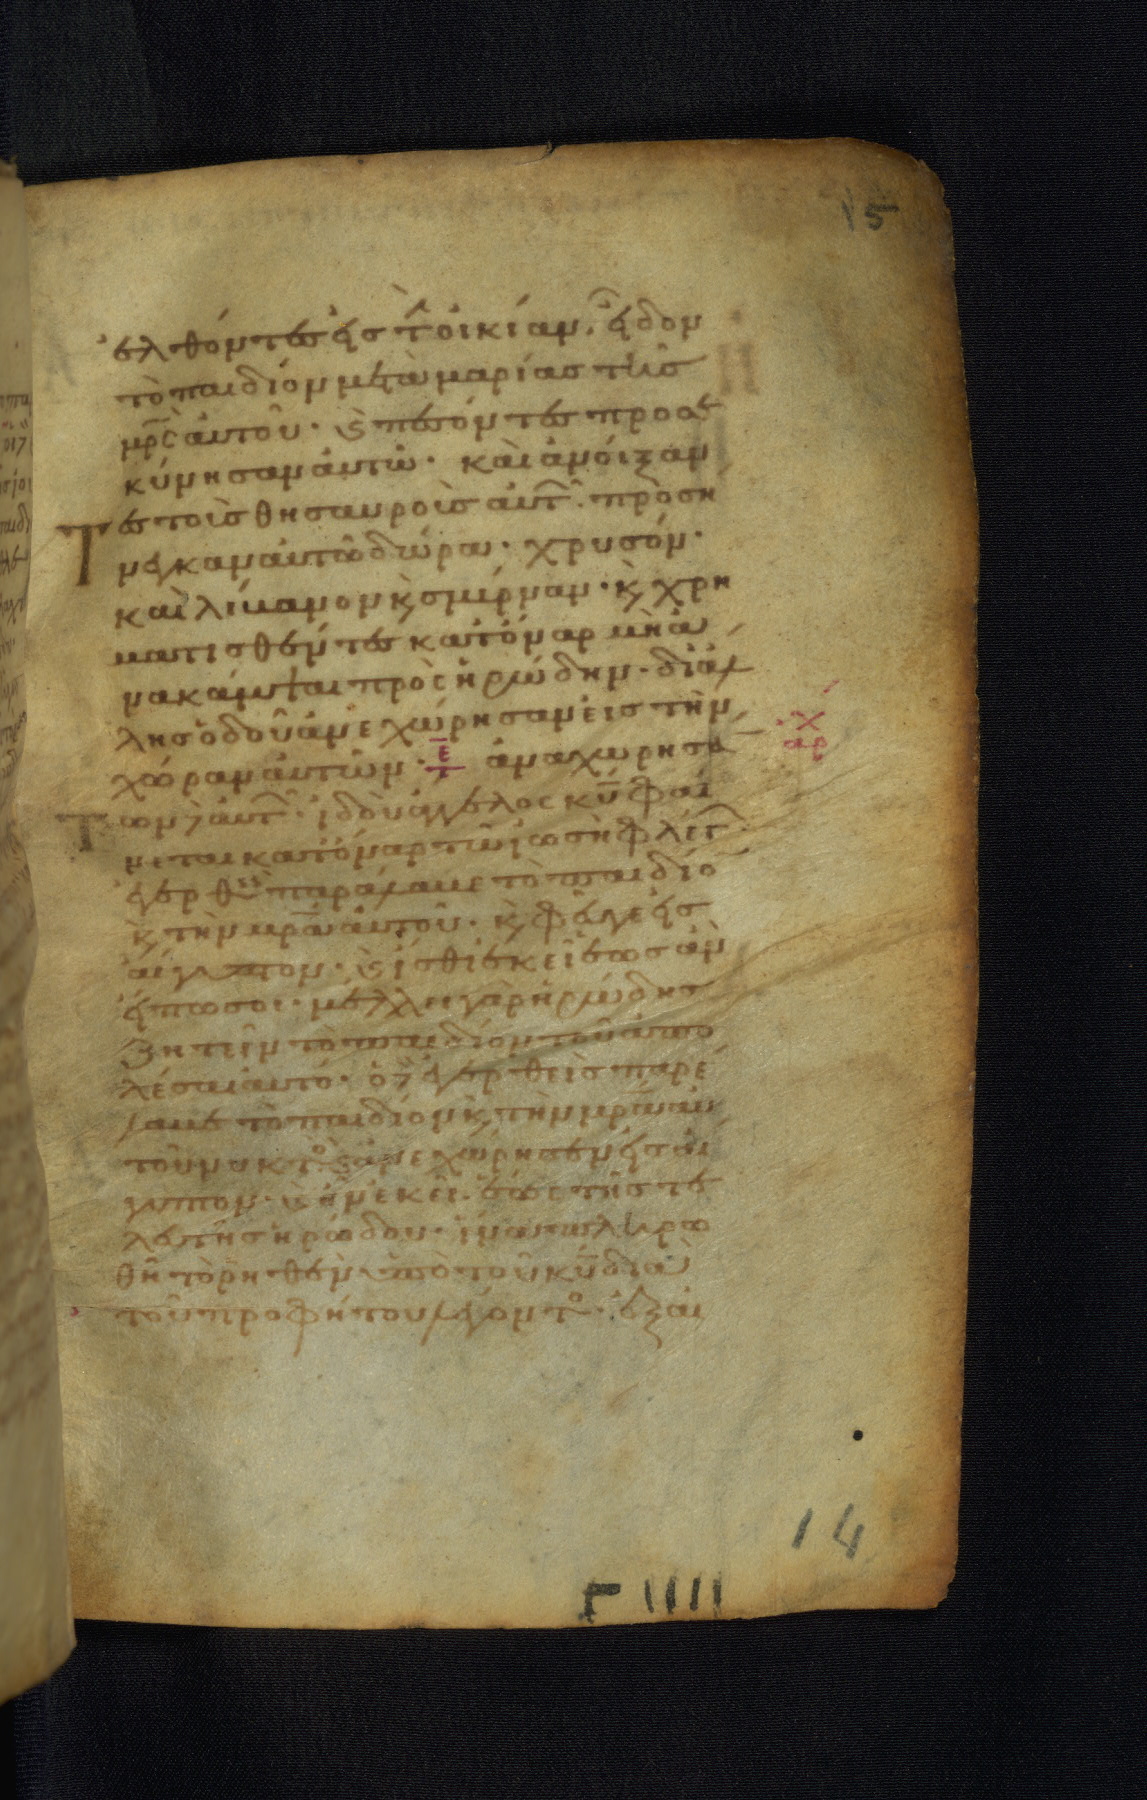 15
ἐλθόντες εἰς τ̀ οἰκίαν, εἶδον
τὸ παιδίον μετὰ μαρίας τῆς
μρ̅ς ἀυτοῦ· κ πεσόντες προσε
κύνησαν ἀυτῶ· καὶ ἀνοίξαν
τες τοὶς θησαυροὶς ἀυτ̑· πρὸση
νεγκαν ἀυτῶ δῶρα· χρυσόν·
καὶ λίβανον κ̀ σμίρναν· κ̀ χρη
ματισθέντες κατόναρ μὴ ἀ
νακάμψαι πρὸς ἡρώδην· δι ἄλ
λης ὁδοῦ ἀνεχώρησαν εἰς τὴν
χώραν ἀυτῶν· ε̅ ἀναχωρησά
χ
αρ
Τ
ων δὲ ἀυτ̑· ἰδοὺ ἄγγελος κ̅υ φαί
νεται κατόναρ τῶ ἰωσὴφ λέγ
ἐγερθεὶς παράλαβε τὸ παιδίο
κ̀ τὴν μρ̅α ἀυτοῦ· κ̀ φεῦγε εἰς
ἄιγυπτον· κ ἴσθι ἐκεῖ ἕως ἂν
εἴπω σοι· μέλλει γὰρ ἡρώδης
ζητεῖν τὸ παιδίον τοῦ ἀπο
λέσαι ἀυτό· ὁ δὲ ἐγερθεὶς παρέ
λαβε τὸ παιδίον κ̀ τὴν μρ̅α ἀυ
τοῦ νυκτὸ κ ἀνεχώρησεν εἰς ἄι
γυπτον· κ ἦν ἐκεῖ. ἕως τῆς τε
λευτῆς ἡρώδου· ἵνα πληρω
θῆ τὸ ῥηθὲν ὑπὸ τοῦ κ̅υ διὰ
τοῦ προφήτου λέγοντο· ἐξ ἀι
14